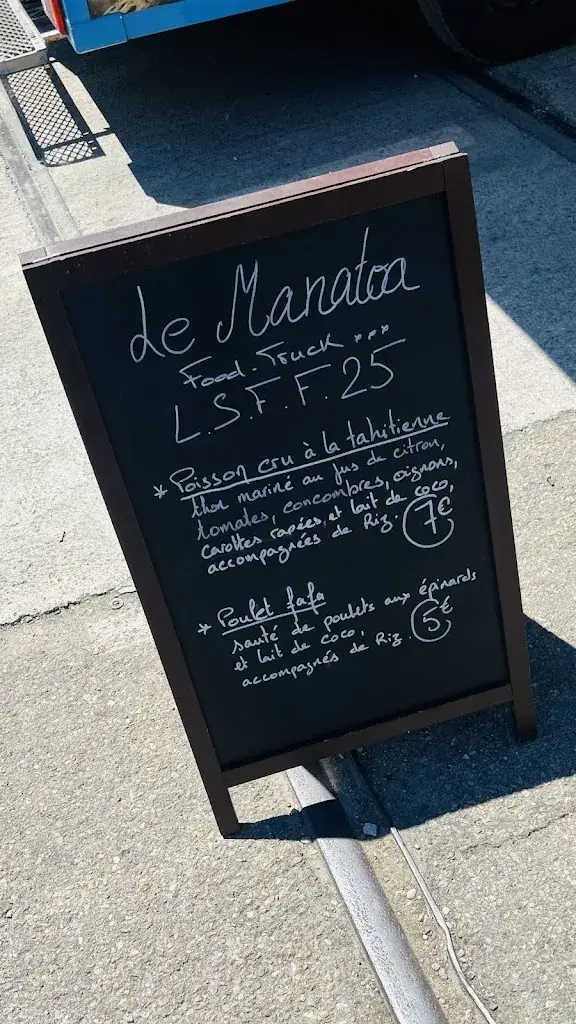 Le Manatoa
Food-Truck ...
L.S.F.F. 25
* Poisson cru à la tahitienne
thon mariné au jus de citron,
tomates, concombres, oignons,
carottes rapées, et lait de coco,
accompagnées de Riz. 7€
* Poulet fafa
sauté de poulets aux épinards
et lait de coco,
accompagnés de Riz. 5€